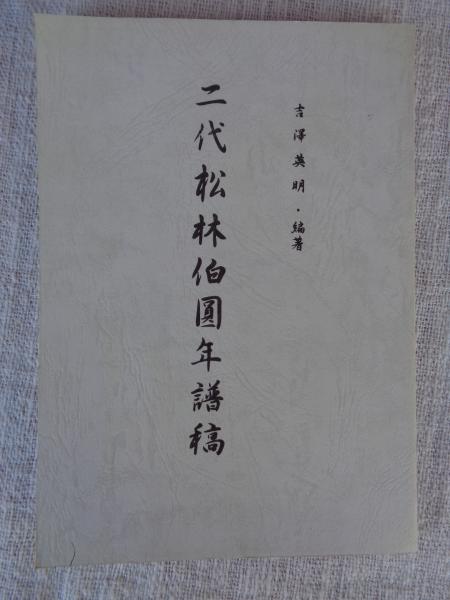 吉澤英明・編著
二代松林伯圓年譜稿